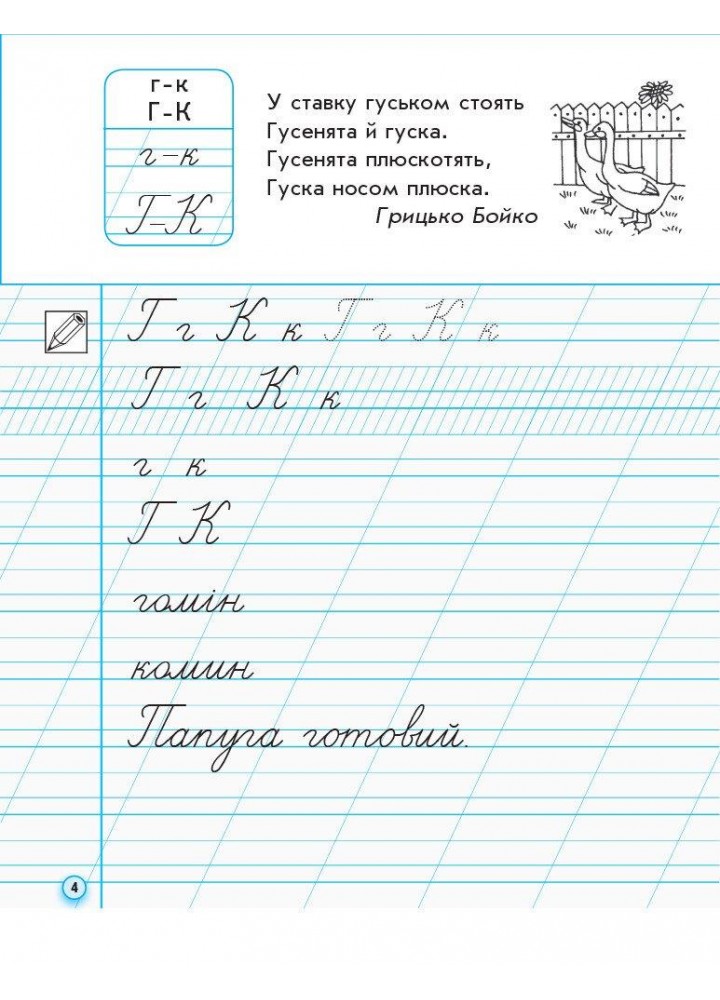 г-к
Г-К
г-к
Г-К
У ставку гуськом стоять
Гусенята й гуска.
Гусенята плюскотять,
Гуска носом плюска.
Грицько Бойко
Г г К к Г г К к
Г г К к
г к
Г К
гомін
комин
Папуга готовий.
4